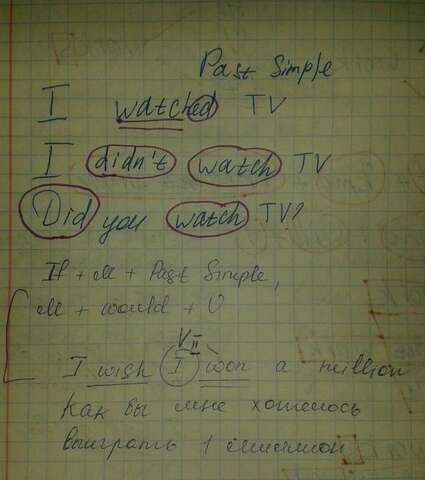 Past Simple
I watched TV
I didn't watch TV
Did you watch TV?
If + М + Past Simple,
М + would + V
V II
I wish I won a million
Как бы мне хотелось
выиграть 1 миллион